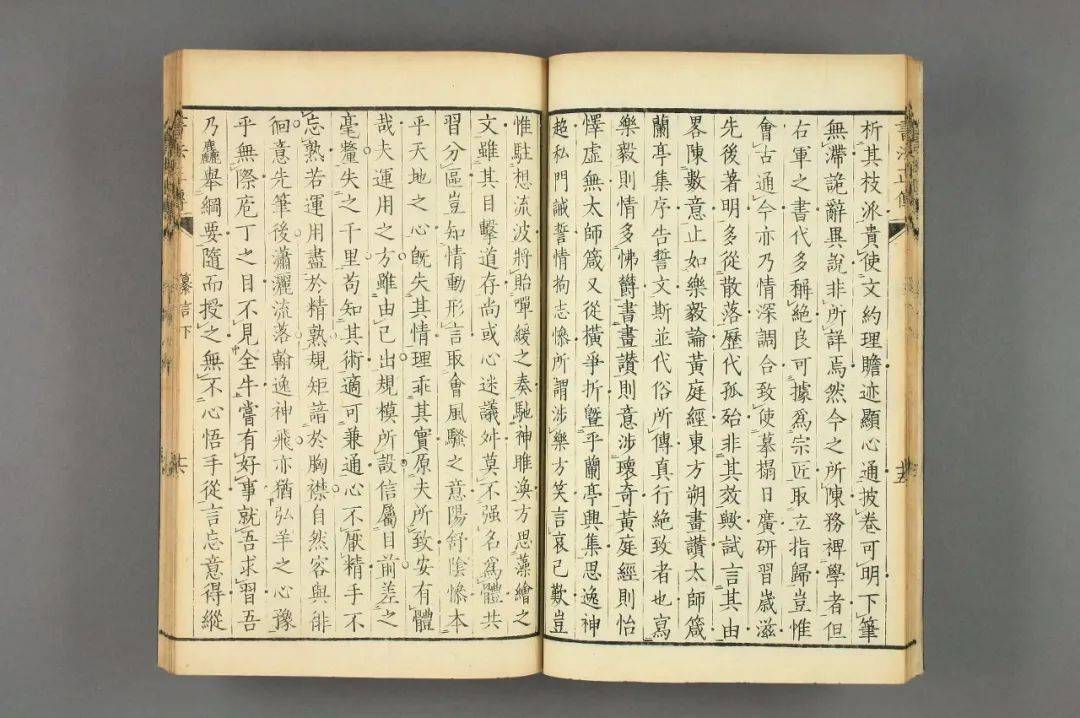 書法正傳
十五
析其枝派貴使文約理贍迹顯心通披卷可明下筆
無滯詭辭異說非所詳焉然今之所陳務裨學者但
右軍之書代多稱絕良可據爲宗匠取立指歸豈惟
會古通今亦乃情深調合致使摹搨日廣研習歲滋
先後著明多從散落歷代孤殆非其效歟試言其由
畧陳數意止如樂毅論黃庭經東方朔畫讚太師箴
蘭亭集序告誓文斯並代俗所傳真行絕致者也寫
樂毅則情多怫欝書畫讚則意涉壞奇黃庭經則怡
懌虛無太師箴又從橫爭折暨乎蘭亭興集思逸神
超私門誡誓情拘志慘所謂涉樂方笑言哀已歎豈
惟駐想流波將貽嘽緩之奏馳神睢渙方思藻繪之
文雖其目擊道存尚或心迷議舛莫不强名爲體共
習分區豈知情動形言取會風騷之意陽舒陰慘本
乎天地之心旣失其情理乖其實原夫所致安有體
哉夫運用之方雖由己出規模所設信屬目前差之
毫釐失之千里苟知其術適可兼通心不厭精手不
忘熟若運用盡於精熟規矩諳於胸襟自然容與徘
徊意先筆後瀟灑流落翰逸神飛亦猶弘羊之心豫
乎無際庖丁之目不見全牛嘗有好事就吾求習吾
乃麤舉綱要隨而授之無不心悟手從言忘意得縱
纂言下
十六